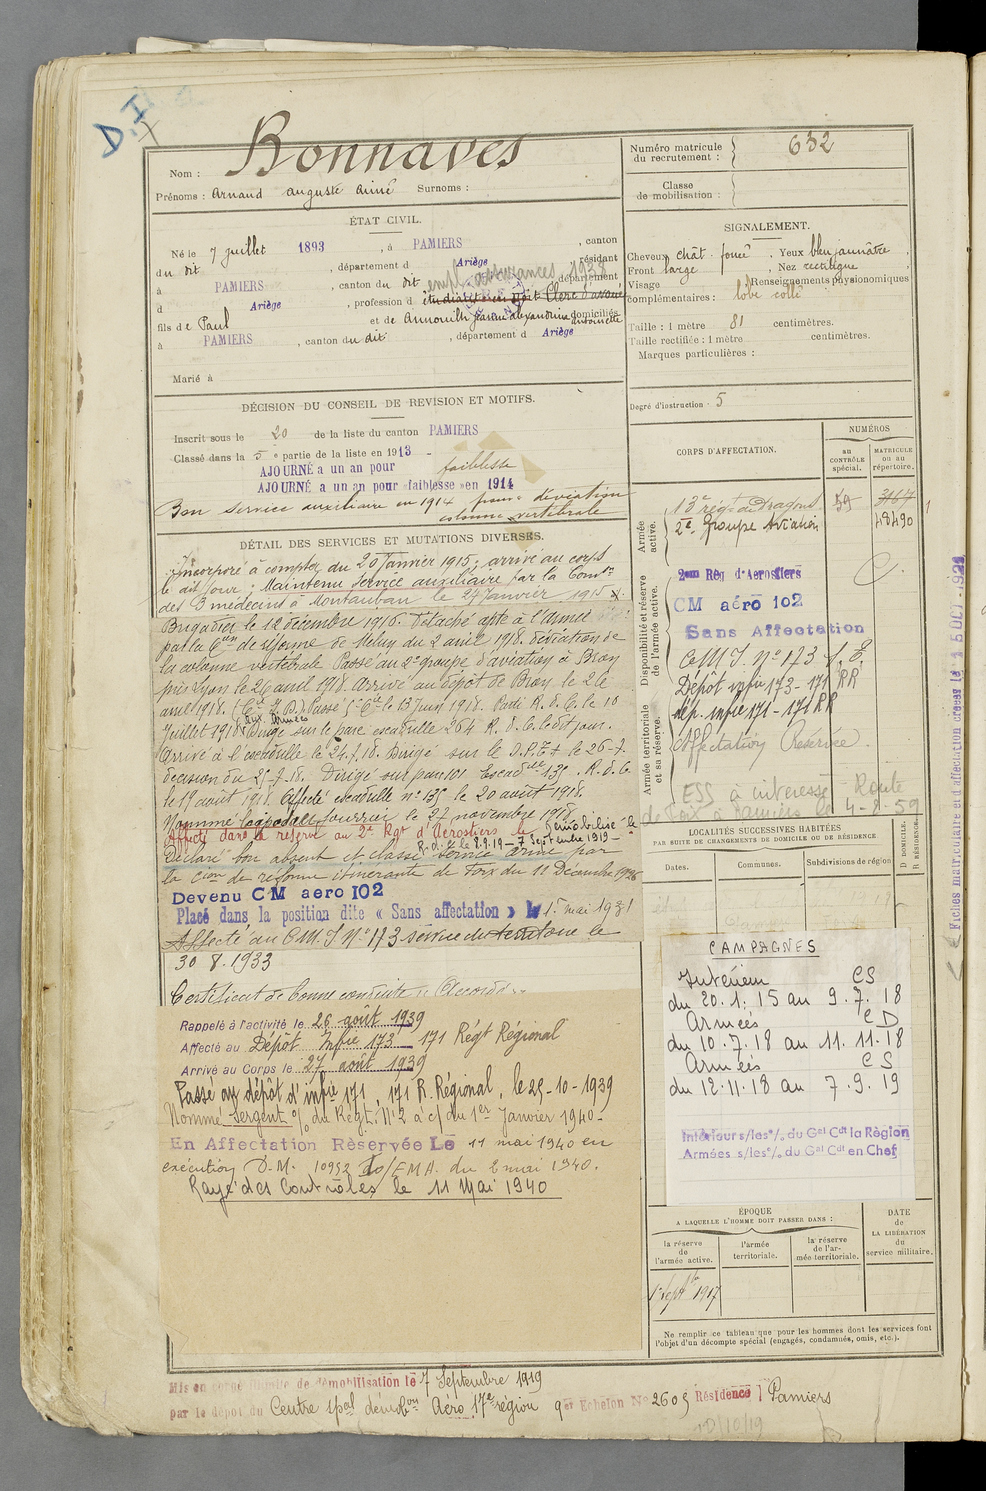 D.I
Nom : Bonnaves
Prénoms : Arnaud Auguste Aimé Surnoms :
Numéro matricule du recrutement : 632
Classe de mobilisation :
ÉTAT CIVIL.
Né le 7 juillet 1893, à PAMIERS, canton
du dit, département d Ariège, résidant
à PAMIERS, canton du dit, empl. assurances 1938 département
d Ariège, profession d étudiant en droit Clerc d'avoué
fils de Paul et de Annouilh Jeanne Alexandrine Antoinette domiciliés
à PAMIERS, canton du dit, département d Ariège
Marié à
SIGNALEMENT.
Cheveux chât. foncé, Yeux bleu jaunâtre,
Front large, Nez rectiligne,
Visage Renseignements physionomiques
complémentaires : lobe collé
Taille : 1 mètre 81 centimètres.
Taille rectifiée : 1 mètre centimètres.
Marques particulières :
Degré d'instruction : 5
DÉCISION DU CONSEIL DE REVISION ET MOTIFS.
Inscrit sous le 20 de la liste du canton PAMIERS
Classé dans la 5e partie de la liste en 1913 -
AJOURNÉ a un an pour faiblesse
AJOURNÉ a un an pour faiblesse en 1914
Bon service auxiliaire en 1914 pour déviation
colonne vertébrale
DÉTAIL DES SERVICES ET MUTATIONS DIVERSES.
Incorporé à compter du 20 Janvier 1915, arrivé au corps
le dit jour. Maintenu service auxiliaire par la Comon
des 3 médecins à Montauban le 27 Janvier 1915
Brigadier le 12 décembre 1916. Détaché apte à l'armée
par la Con de réforme de Melun du 2 avril 1918. déviation de
la colonne vertébrale Passé au 2e groupe d'aviation à Bron
près Lyon le 26 avril 1918. Arrivé au dépôt de Bron le 26
avril 1918. Passé 5e Cie le 13 juin 1918. Parti R.d.C. le 10
juillet 1918 Aux Armées Dirigé sur le parc escadrille 264 R.d.C. le dt jour.
Arrivé à l'escadrille le 24.7.18. Dirigé sur le D.P.E. le 26-7.
décision du 25-7-18. Dirigé sur parc 101 Escadlle 135. R.d.C
le 19 août 1918. Affecté escadrille no 135 le 20 août 1918.
Nommé fourrier le 27 novembre 1918.
Affecté dans la réserve au 2e Rgt d'Aérostiers Démobilisé le
7 Septembre 1919 -
Déclaré bon absent et classé service armé par
la Cion de réforme itinérante de Foix du 11 Décembre 1926
Devenu CM aero 102
Placé dans la position dite « Sans affectation » le 1er mai 1931
Affecté au C.M.I No 173 service du territoire le
30-8-1933
Certificat de bonne conduite : Accordé.
Rappelé à l'activité le 26 août 1939
Affecté au Dépôt Infie 173 - 171 Régt Régional
Arrivé au Corps le 27 août 1939
Passé au dépôt d'infie 171, 171 R. Régional, le 25-10-1939
Nommé sergent o/ du Régt. No 2 à c/ du 1er Janvier 1940-
En Affectation Rèservée Le 11 mai 1940 en
exécution D.M. 10952 /E.M.A. du 2 mai 1940.
Rayé des Contrôles le 11 Mai 1940
CORPS D'AFFECTATION.
NUMÉROS
au CONTRÔLE spécial.
MATRICULE ou au répertoire.
Armée active.
13e régt de Dragons 59 3167
2e Groupe Aviation 48490
Disponibilité et réserve de l'armée active.
2eme Rég d'Aerostiers
CM aéro 102
Sans Affectation
CeMI No 173
Armée territoriale et sa réserve.
Dépôt infie 173 - 171 RR
dép. infie 171 - 171 RR
Affectation Réservée.
ESS à intéressé Route
de Foix à Pamiers le 4-8-59
LOCALITÉS SUCCESSIVES HABITÉES
PAR SUITE DE CHANGEMENTS DE DOMICILE OU DE RÉSIDENCE
Dates. Communes. Subdivisions de région D DOMICILE. R RÉSIDENCE.
CAMPAGNES
Intérieur CS
du 20.1.15 au 9.7.18
Armées CD
du 10.7.18 au 11.11.18
Armées CS
du 12.11.18 au 7.9.19
Intérieur s/les o/. du Gal Cdt la Règion
Armées s/les o/. du Gal Cdt en Chef
ÉPOQUE
A LAQUELLE L'HOMME DOIT PASSER DANS :
DATE de LA LIBÉRATION du service militaire.
la réserve de l'armée active.
l'armée territoriale.
la réserve de l'armée territoriale.
1er Septbre 1917
Ne remplir ce tableau que pour les hommes dont les services font
l'objet d'un décompte spécial (engagés, condamnés, omis, etc.).
Mis en congé illimité de démobilisation le 7 Septembre 1919
par le dépôt du Centre spal demobon Aéro 17e région 9er Echelon No 2605 Résidence Pamiers
10/10/19